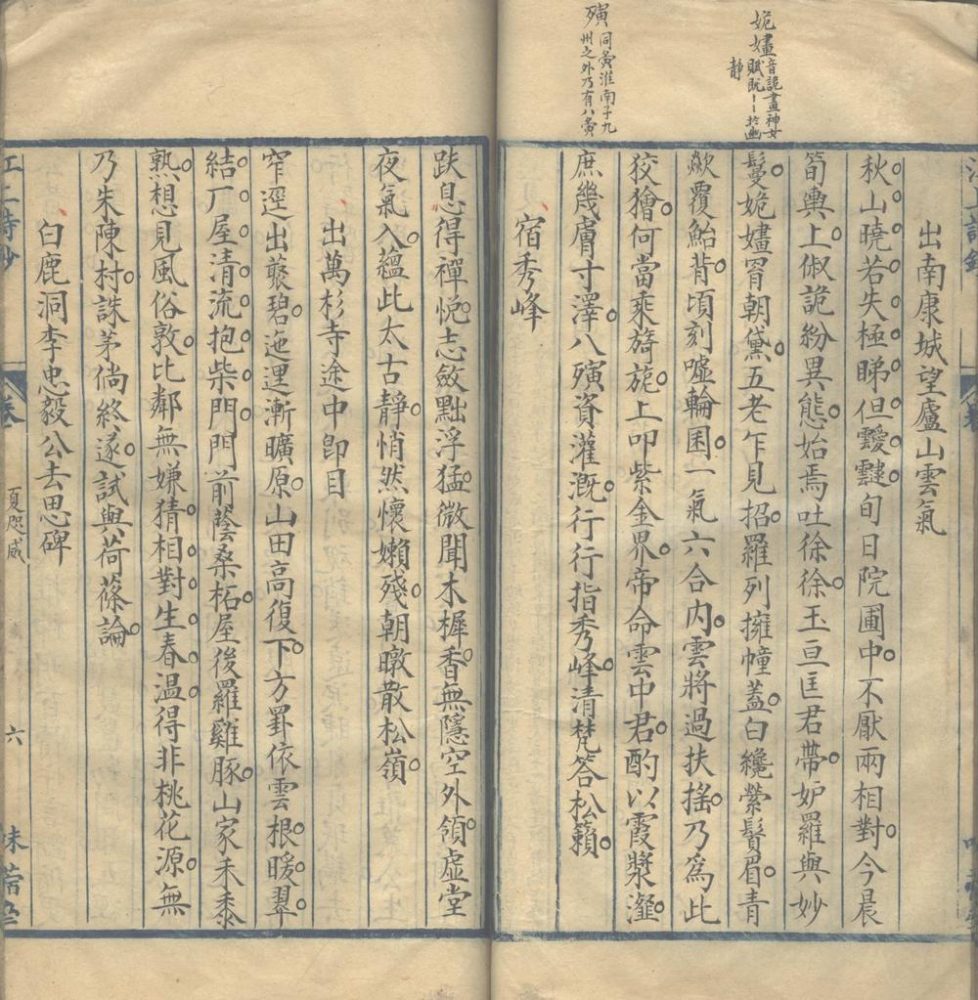 出南康城望廬山雲氣
秋山曉若失極睇但靉靆旬日院圃中不厭兩相對今晨
筍輿上俶詭紛異態始焉吐徐徐玉亘匡君帶妒羅與妙
鬘姽嫿罥朝黛五老乍見招羅列擁幢蓋白纔縈鬢眉青
歘覆鮐背頃刻噓輪囷一氣六合内雲將過扶搖乃爲此
狡獪何當乘旖旎上叩紫金界帝命雲中君酌以霞漿瀣
庶幾膚寸澤八㱠資灌溉行行指秀峰清梵答松籟
宿秀峰
姽嫿音詭畫神女
賦既丨丨於幽
靜
㱠同夤淮南子九
州之外乃有八夤
趺息得禪悦志斂黜浮猛微聞木樨香無隱空外領虚堂
夜氣入蘊此太古靜悄然懷嬾殘朝暾散松嶺
出萬杉寺途中卽目
窄逕出藂碧迤邐漸曠原山田高復下方罫依雲根暖翠
結厂屋清流抱柴門門前蔭桑柘屋後羅雞豚山家禾黍
熟想見風俗敦比鄰無嫌猜相對生春温得非桃花源無
乃朱陳村誅茅倘終遂試與荷蓧論
白鹿洞李忠毅公去思碑
六